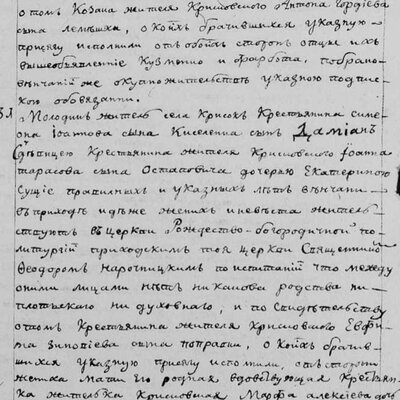 отомъ Козака жителя Крисковского Антона Гордіева
сына о коихъ брачившихся указную
присягу исполнили отъ обоихъ сторонъ отцы ихъ
вышеобъявленніе и по брако
вѣнчаніи же оную жительствъ указною подпис
кою обовязанни
Молодикъ житель села Крисокъ Крестьянина Симе
она Іоаннова сына Киселенка сынъ Даміанъ
Съ дѣвицею Крестьянина жителя Крисковского Іоанна
Тарасова сына Остаповича дочерью Екатериною
Сущіе правилныхъ и указныхъ лѣтъ вѣнчани
въ приходѣ идѣже женихъ и невѣста жителъ
ствуютъ въ церкви Рождество-богородичной по
литургіи приходскимъ тоя церкви Священникомъ
Феодоромъ по испытаніи что между
оними лицами нѣтъ никакова родства ни
плотскаго ни духовнаго, и по свидѣтельству
отомъ Крестьянина жителя Крисковского Евфи
ма Зиновіева сына о коихъ брачив
шихся указную присягу исполнили, отъ стороны
жениха мати его родная вдовствующая Крестьян
ка жителька Крисковская Марфа Алексіева дочь